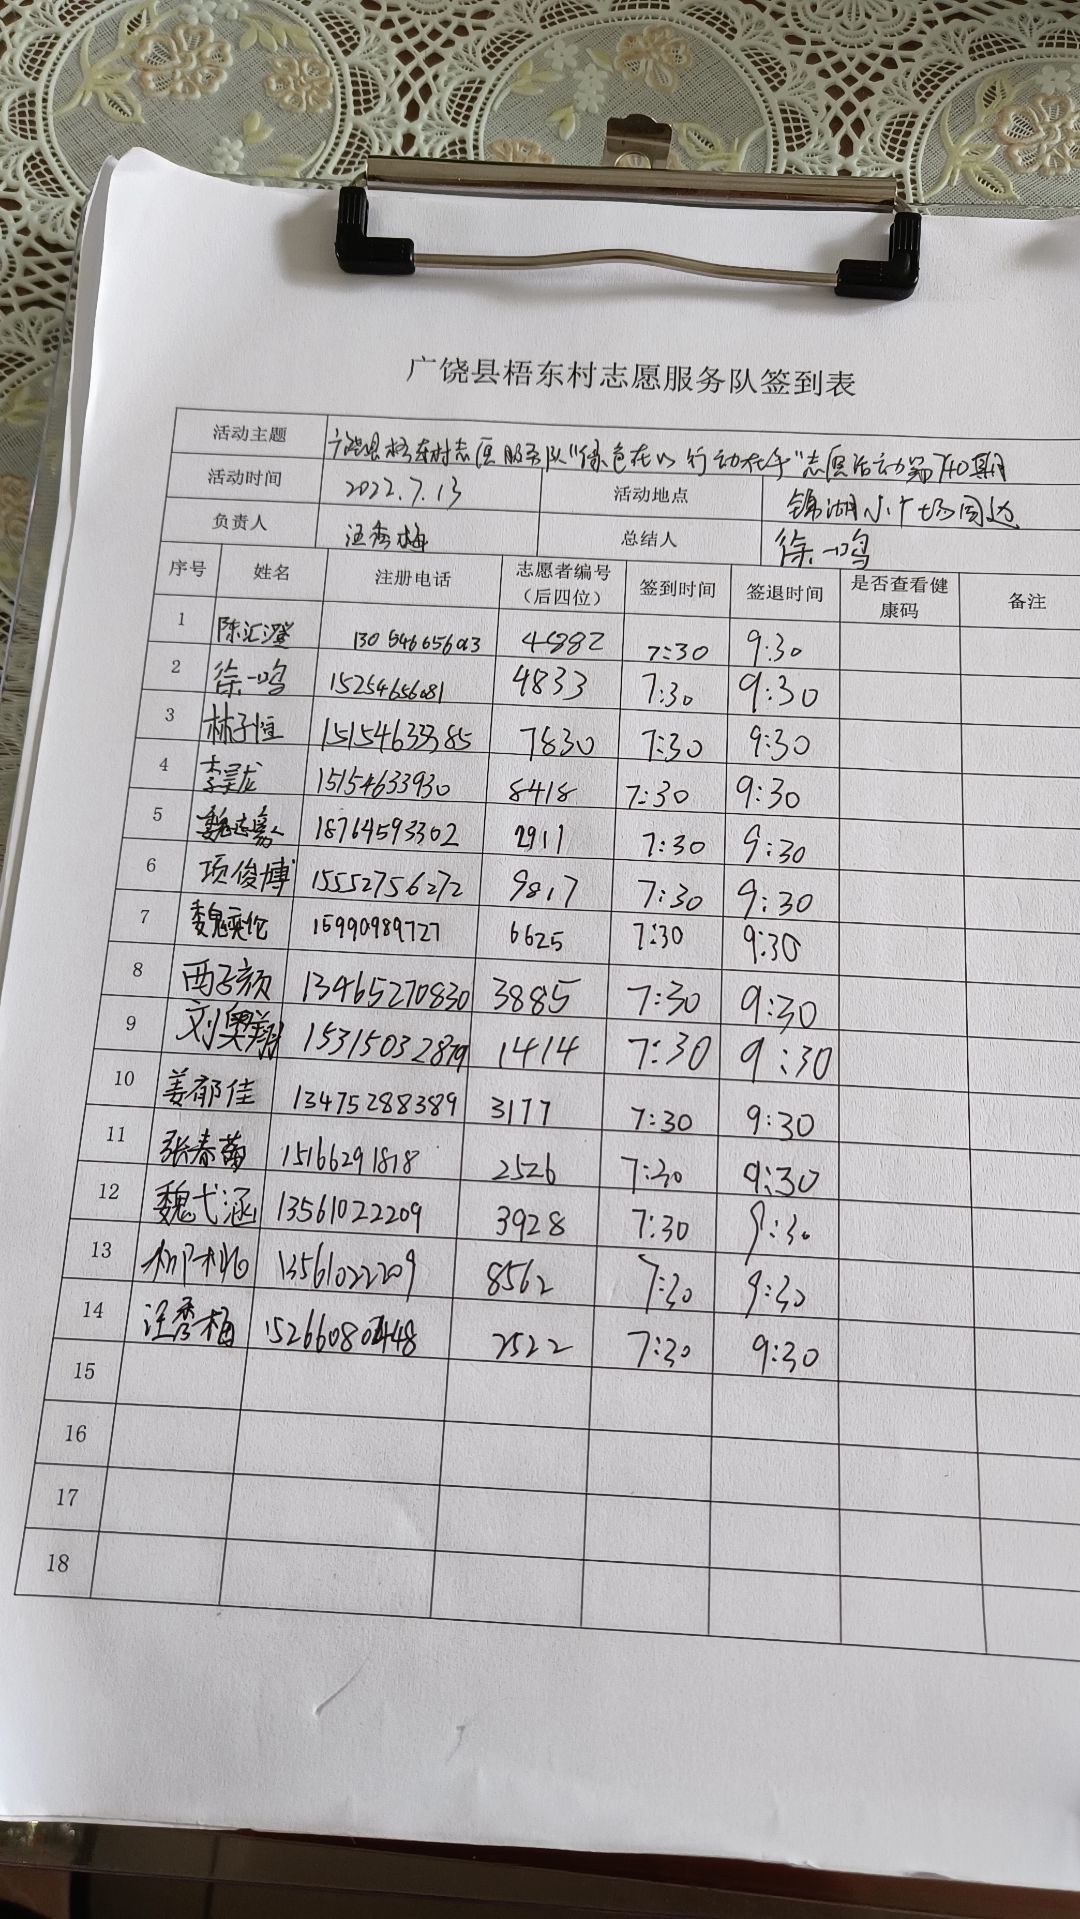 广饶县梧东村志愿服务队签到表
活动主题 广饶县梧东村志愿服务队"绿色在心 行动在手"志愿活动第740期
活动时间 2022.7.13 活动地点 锦湖小广场周边
负责人 汪秀梅 总结人 徐一鸣
序号 姓名 注册电话 志愿者编号（后四位） 签到时间 签退时间 是否查看健康码 备注
1 陈汇澄 4882 7:30 9:30
2 徐一鸣 15254656081 4833 7:30 9:30
3 林子恒 15154633385 7830 7:30 9:30
4 李昊龙 15154633930 8418 7:30 9:30
5 18764593302 2911 7:30 9:30
6 项俊博 15552756272 9817 7:30 9:30
7 魏奕伦 15990989727 6625 7:30 9:30
8 西子颜 13465270830 3885 7:30 9:30
9 刘奥翔 15315032879 1414 7:30 9:30
10 姜郁佳 13475288389 3177 7:30 9:30
11 张春苗 15166291818 2526 7:30 9:30
12 魏弋涵 13561022209 3928 7:30 9:30
13 13561022209 8562 7:30 9:30
14 汪秀梅 2522 7:30 9:30
15
16
17
18